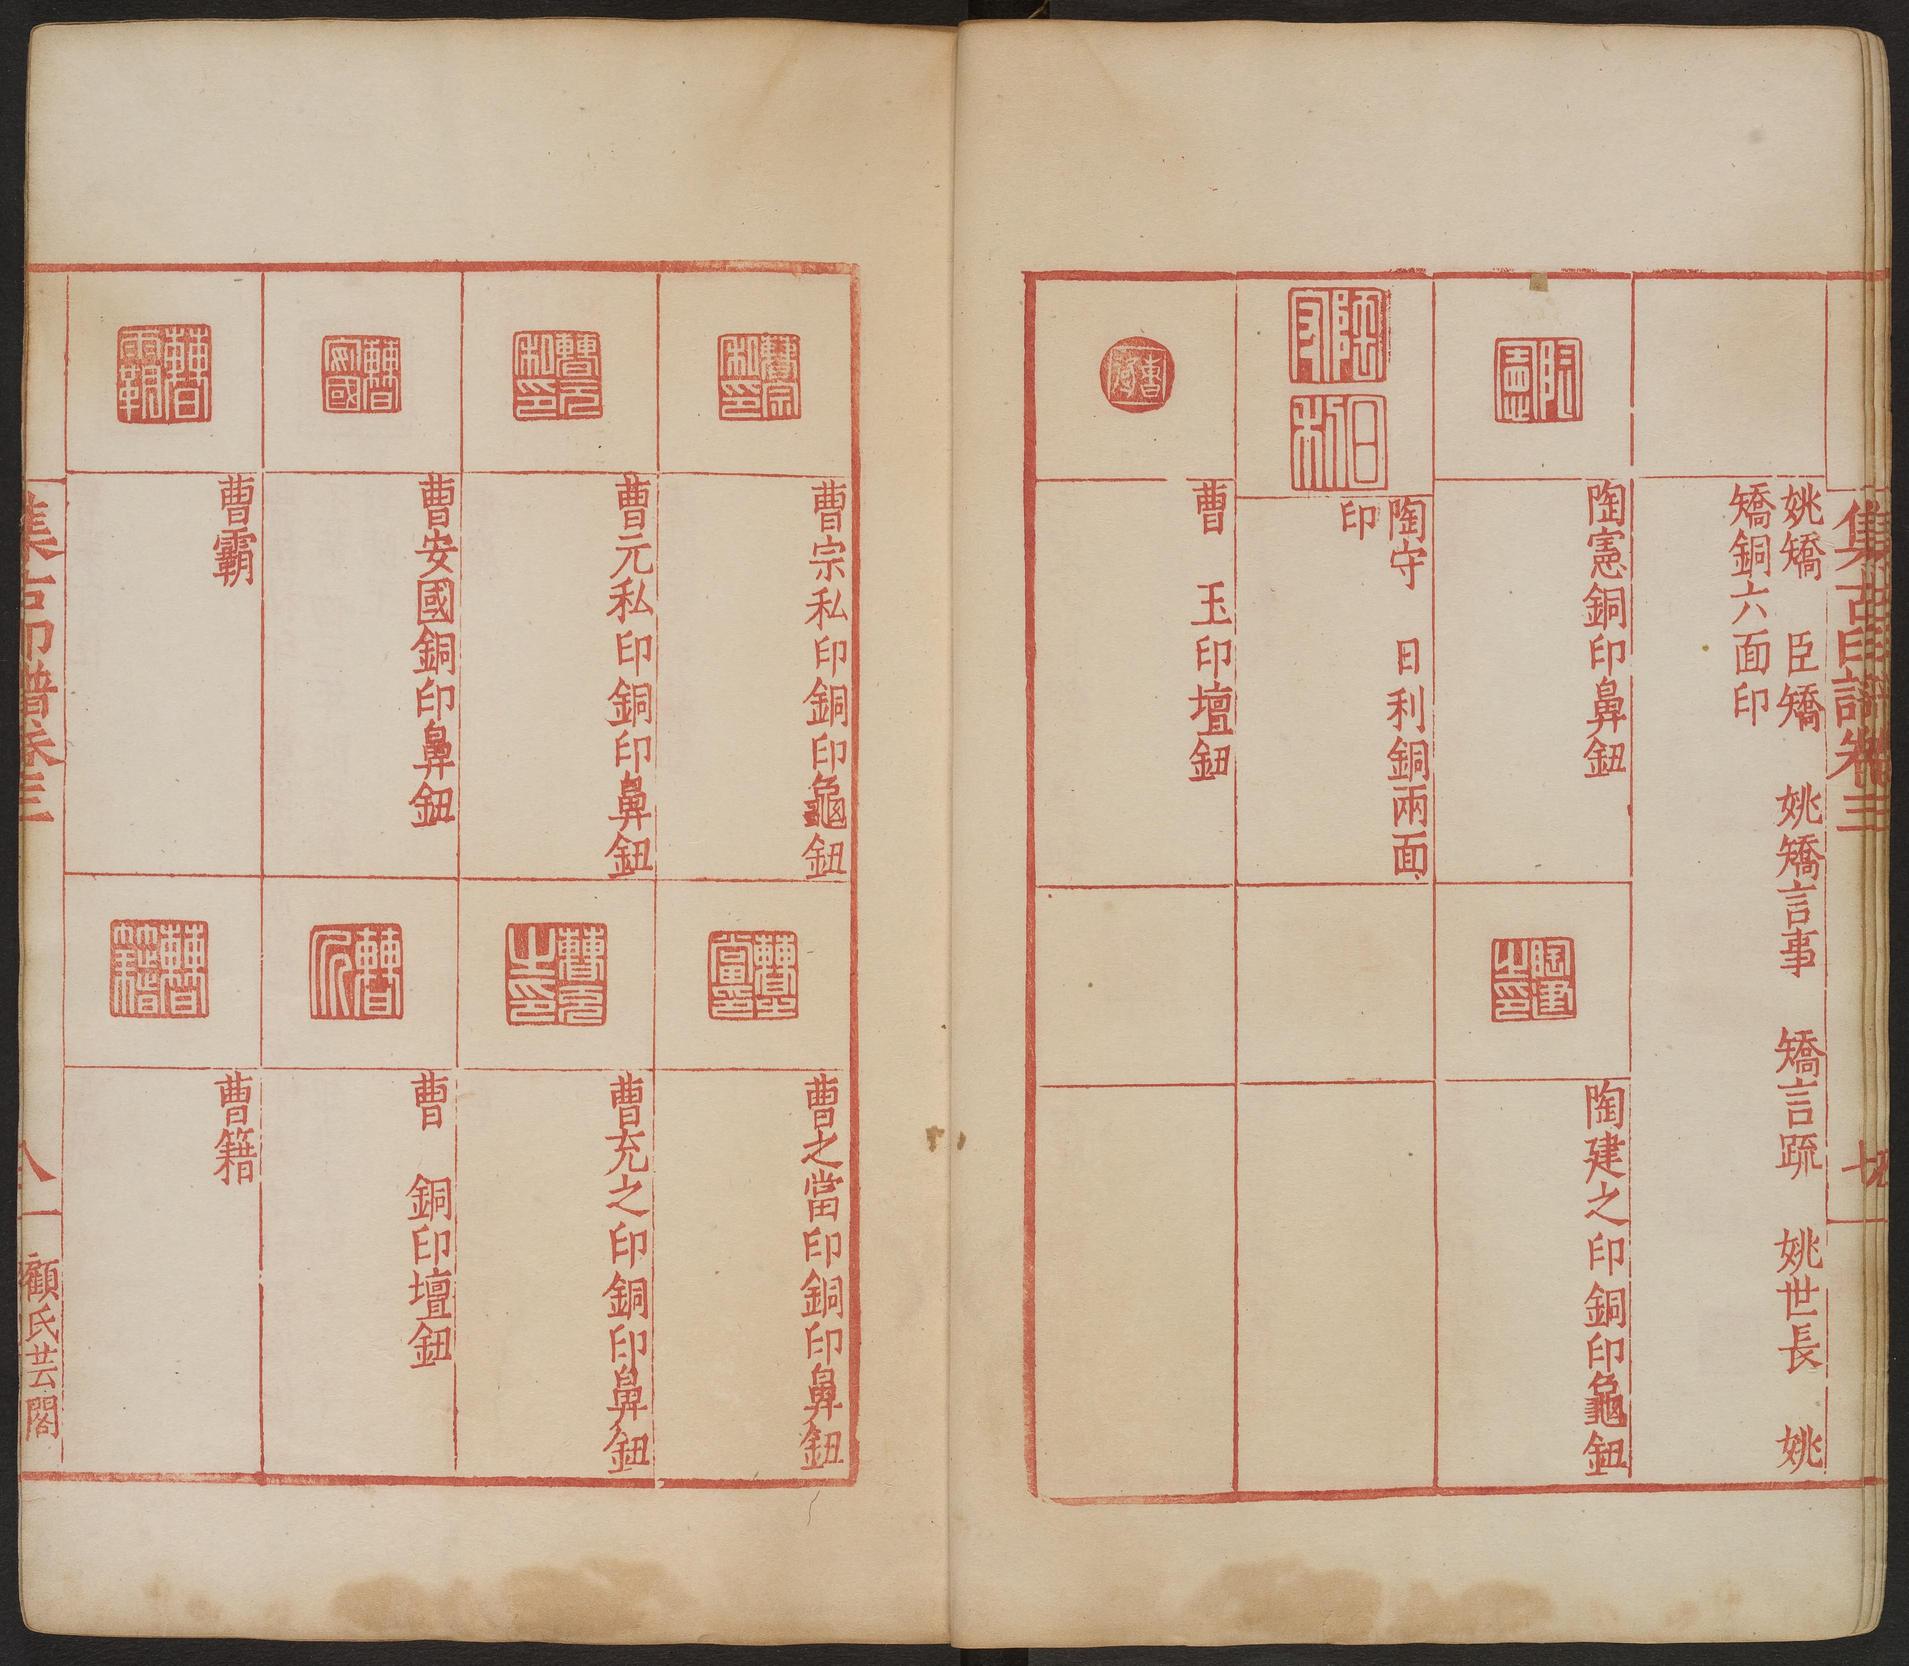 集古印譜卷三
姚矯　臣矯　姚矯言事　矯言疏　姚世長　姚
矯銅六面印
陶憲銅印鼻鈕
陶建之印銅印龜鈕
陶守　日利銅兩面
印
曹　玉印壇鈕
曹宗私印銅印龜鈕
曹之當印銅印鼻鈕
曹元私印銅印鼻鈕
曹充之印銅印鼻鈕
曹安國銅印鼻鈕
曹　銅印壇鈕
曹霸
曹籍
集古印譜卷三
顧氏芸閣